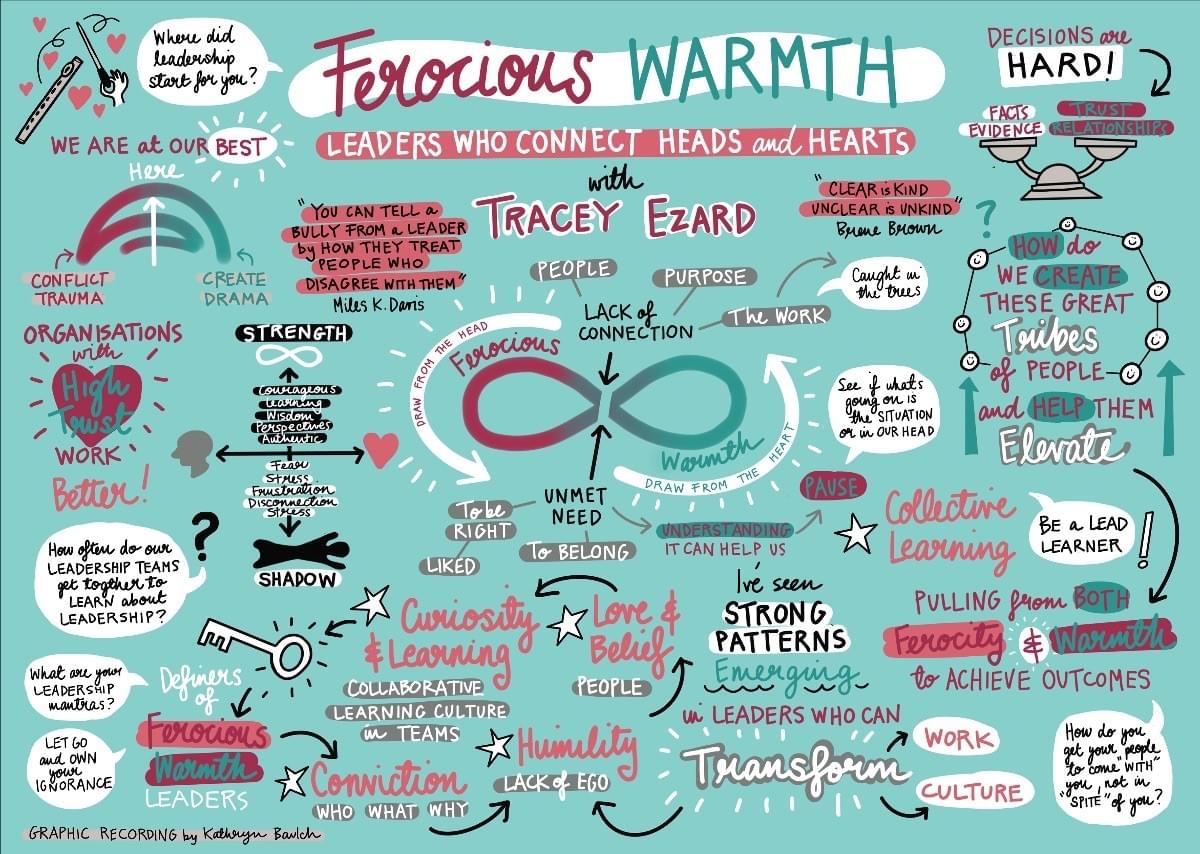 Where did
leadership
start for you?
Ferocious WARMTH
LEADERS WHO CONNECT HEADS and HEARTS
with
TRACEY EZARD
DECISIONS are
HARD!
FACTS
EVIDENCE
TRUST
RELATIONSHIPS
WE ARE at OUR BEST
Here
CONFLICT
TRAUMA
CREATE
DRAMA
"YOU CAN TELL a
BULLY FROM a LEADER
by HOW THEY TREAT
PEOPLE WHO
DISAGREE WITH THEM"
Miles K. Davis
"CLEAR is KIND
UNCLEAR is UNKIND"
Brene Brown
?
HOW do
WE CREATE
THESE GREAT
Tribes
of PEOPLE
and HELP THEM
Elevate
ORGANISATIONS
with
High
Trust
WORK
Better!
STRENGTH
Courageous
Learning
Wisdom
Perspectives
Authentic
Fear
Stress
Frustration
Disconnection
Stress
SHADOW
PEOPLE
PURPOSE
LACK of
CONNECTION
The WORK
Caught in
the trees
DRAW FROM THE HEAD
Ferocious
Warmth
DRAW FROM THE HEART
See if whats
going on is
the SITUATION
or in OUR HEAD
UNMET
NEED
To be
RIGHT
LIKED
To BELONG
UNDERSTANDING
IT CAN HELP US
PAUSE
Collective
Learning
BE a LEAD
LEARNER
!
How often do our
LEADERSHIP TEAMS
get together to
LEARN about
LEADERSHIP?
?
PULLING from BOTH
Ferocity & Warmth
to ACHIEVE OUTCOMES
What are your
LEADERSHIP
mantras?
LET GO
and OWN
your
IGNORANCE
Definers
of
Ferocious
Warmth
LEADERS
Curiosity
& Learning
COLLABORATIVE
LEARNING CULTURE
in TEAMS
Love &
Belief
PEOPLE
Conviction
WHO WHAT WHY
Humility
LACK of EGO
I've seen
STRONG
PATTERNS
Emerging
in LEADERS WHO CAN
Transform
WORK
CULTURE
How do you
get your people
to come "WITH"
you, not in
"SPITE" of you?
GRAPHIC RECORDING by Kathryn Bavlch